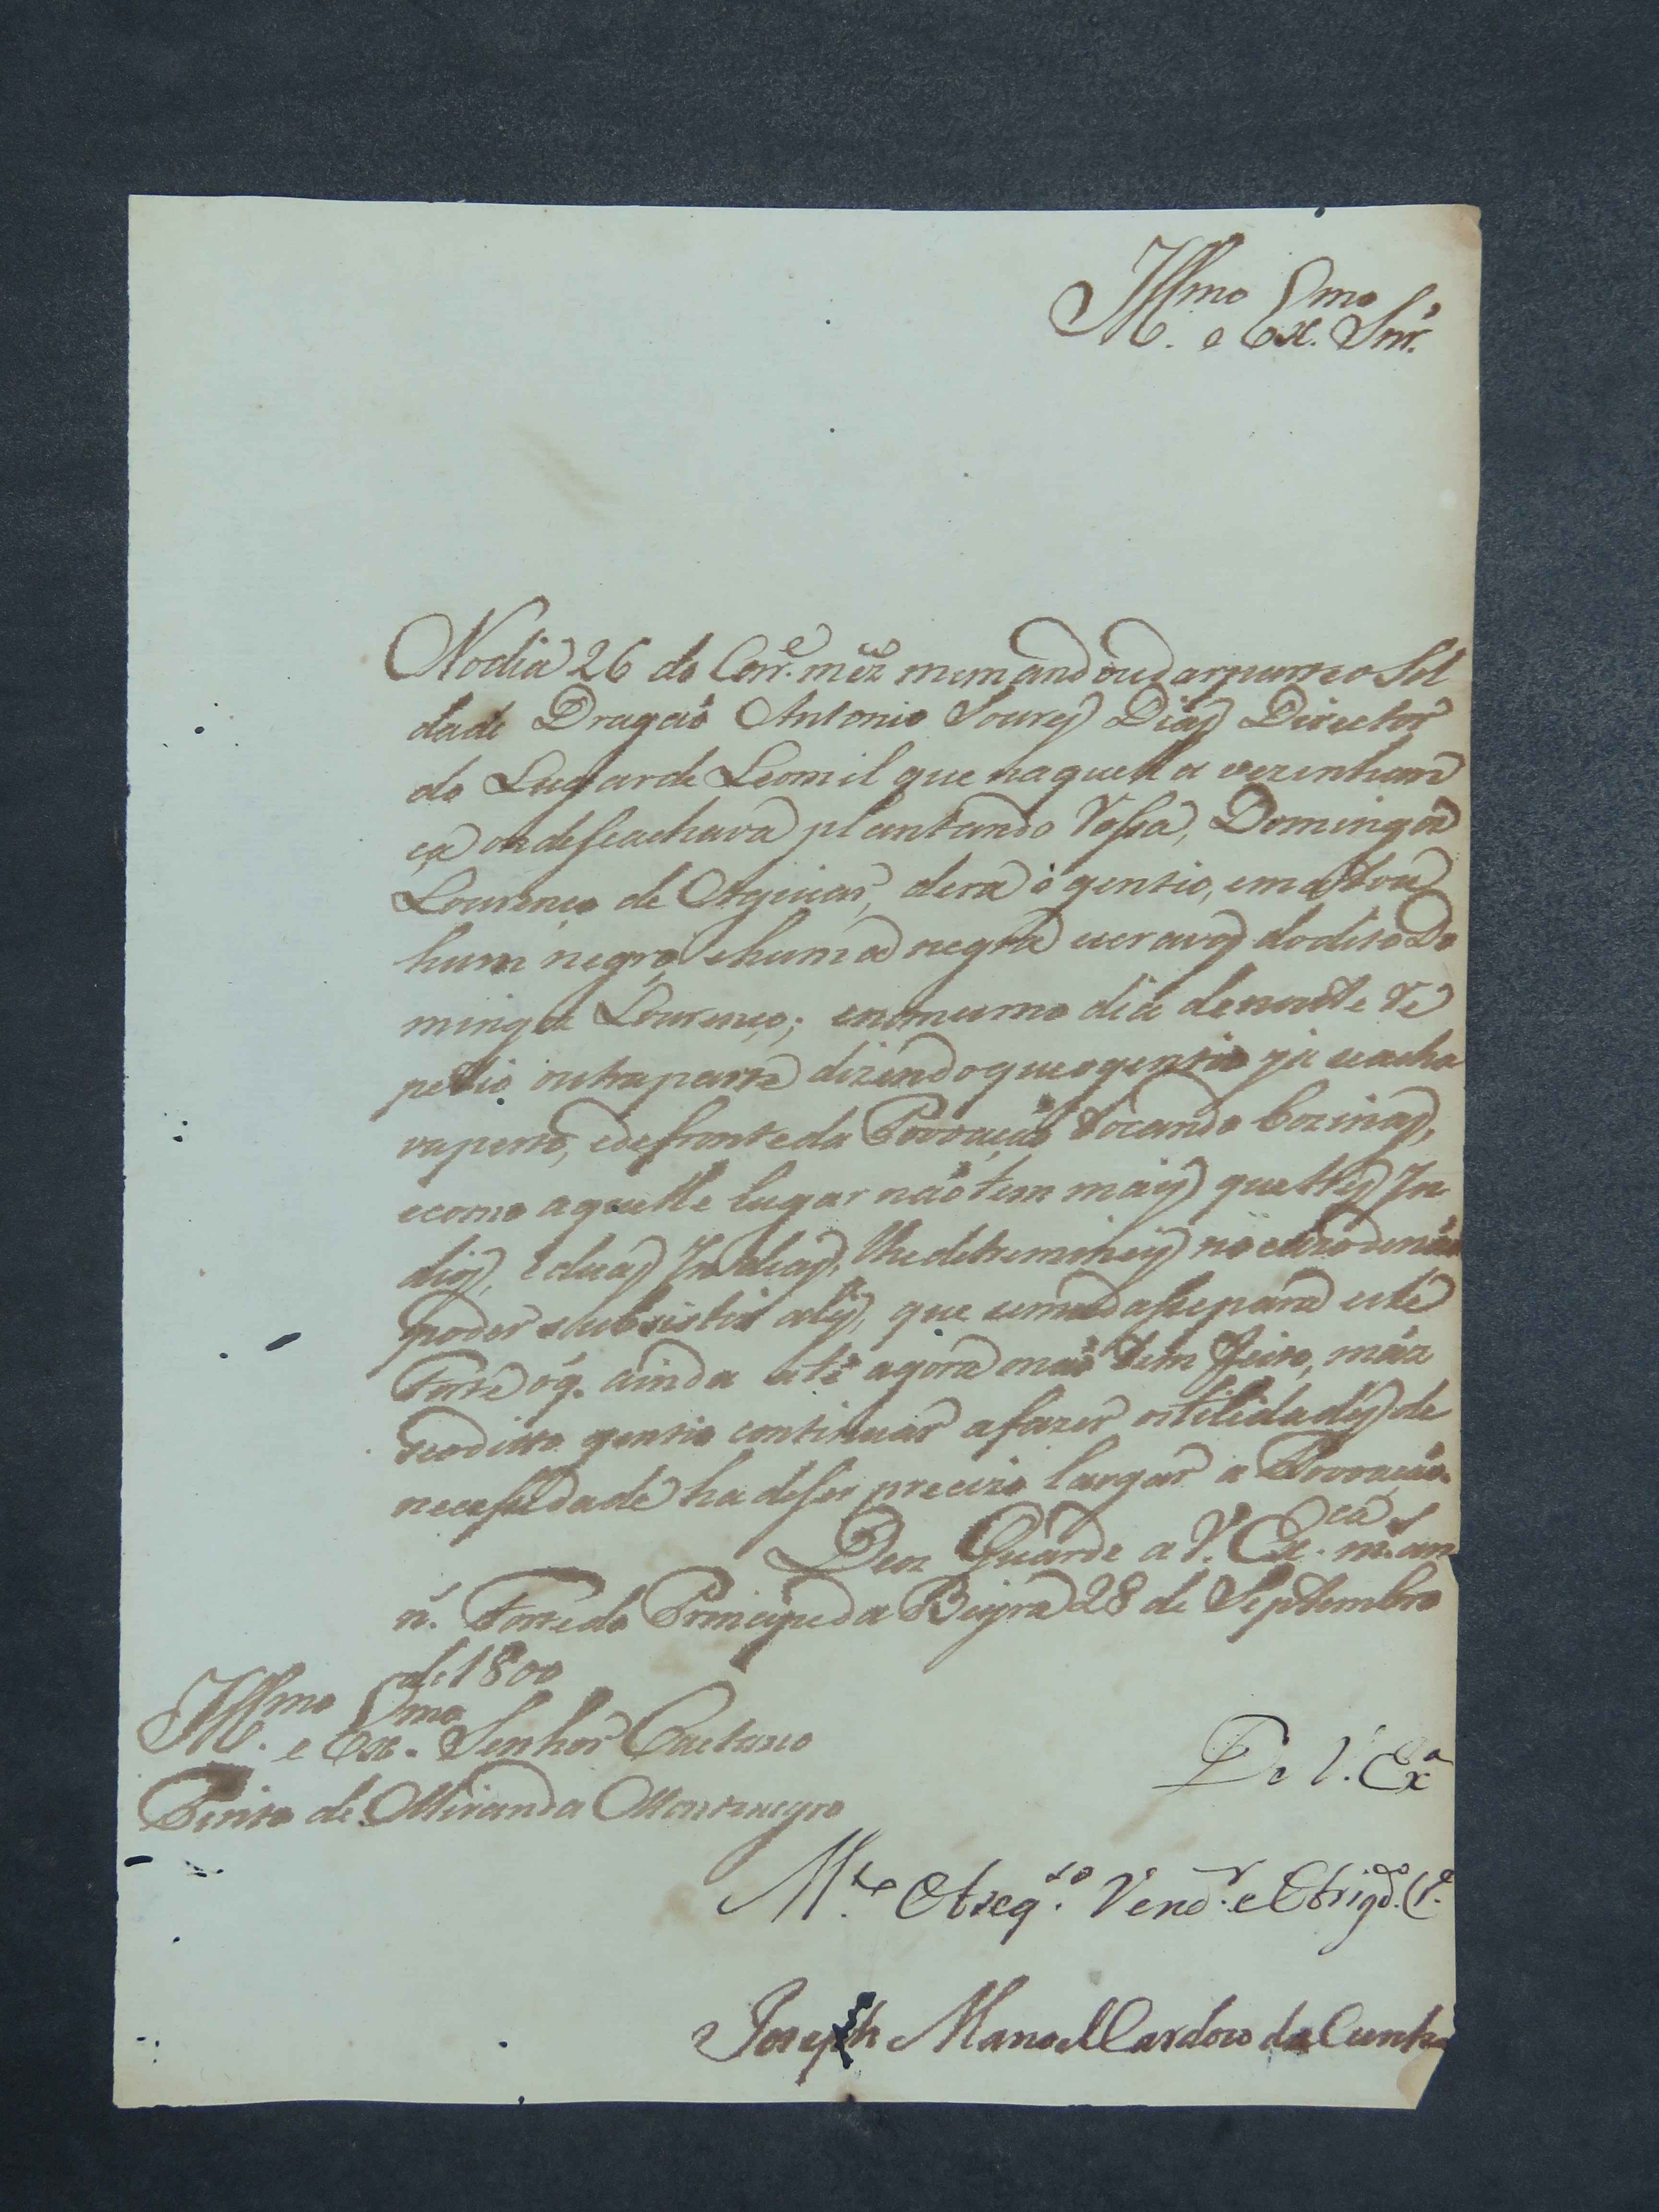 Ill.mo e Ex.mo Snr.
No dia 26 do Corr.e mêz me mandou dar parte o Sol
dado Dragaõ Antonio Soares Dias Director
do Lugar de Leomil que naquella vezinhan
ça onde se achava plantando Rossa, Domingos
Lourenço de Aguiar, dera o gentio, e matou
hum negro, e huma negra escravos do dito Do
mingos Lourenço; e no mesmo dia de noute re
petio outra parte dizendo que o gentio já se acha
va perto, e defronte da Povoação tocando bozinas,
e como aquelle lugar naõ tem mais que tres In
dios, e duas Indias, lhe detreminey no cazo de naõ
poder subsistir aly, que se mudasse para este
Forte o q. ainda até agora naõ tem feito, máz
se o ditto gentio continuar a fazer ostilidades de
necessidade ha de ser precizo largar a Povoação.
Deos Guarde a V. Ex.cia m.s an
n.s Forte do Principe da Beyra 28 de Septembro
de 1800
Ill.mo e Ex.mo Senhor Caetano
Pinto de Miranda Montenegro
De V. Ex.a
M.to Obzeq.zo Vened.r e Obrigd.o Cr.o
Joseph Manoel Cardozo da Cunha